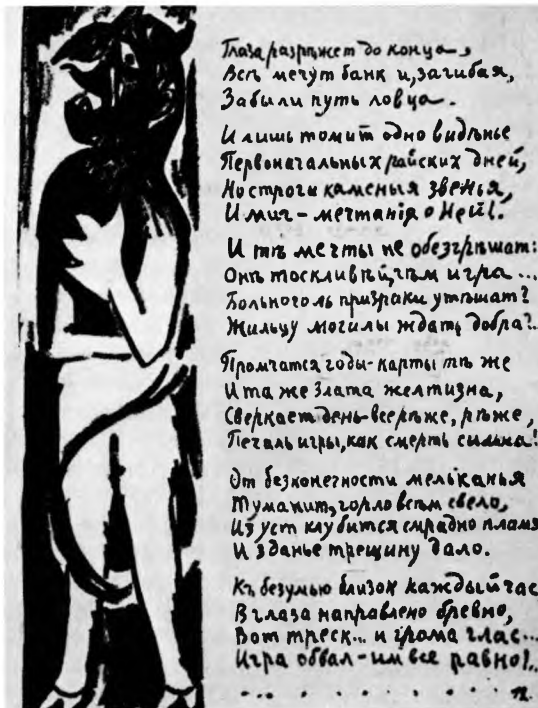 Глаза разрѣжет до конца,
Всѣ мечут банк и, загибая,
Забыли путь ловца.
И лишь томит одно видѣнье
Первоначальных райских дней,
Но строги каменыя звенья,
И миг – мечтанія о Ней!.
И тѣ мечты не обезгрѣшат:
Онѣ тоскливѣй, чѣм игра...
Больного ль призраки утѣшат?
Жильцу могилы ждать добра?..
Промчатся годы – карты тѣ же
И та же злата желтизна,
Сверкает день – все рѣже, рѣже,
Печаль игры, как смерть сильна!
От безконечности мельканья
Туманит, горло всѣм свело,
Из уст клубится смрадно пламя
И зданье трещину дало.
Къ безумью близок каждый час
В глаза направлено бревно,
Вот треск... и грома глас...
Игра обвал – им все равно!..
12.